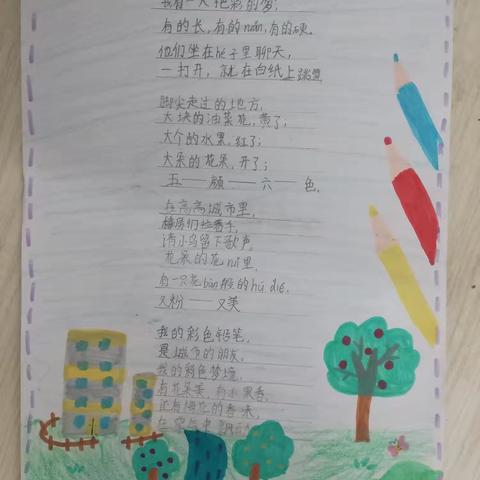 我有一大把彩的梦，
有的长，有的nuǎn，有的硬。
他们坐在hé子里聊天，
一打开，就在白纸上跳舞
脚尖走过的地方，
大块的油菜花，黄了；
大个的水果，红了；
大朵的花朵，开了；
五——颜——六——色。
在高高城市里，
楼房们拉着手，
请小鸟留下歌声。
花朵的花ruǐ里，
有一只花bān般的hú dié，
又粉——又美
我的彩色铅笔，
是城市的朋友，
我的彩色梦境，
有花朵美，有水果香，
还有梅花的香味，
在空气中